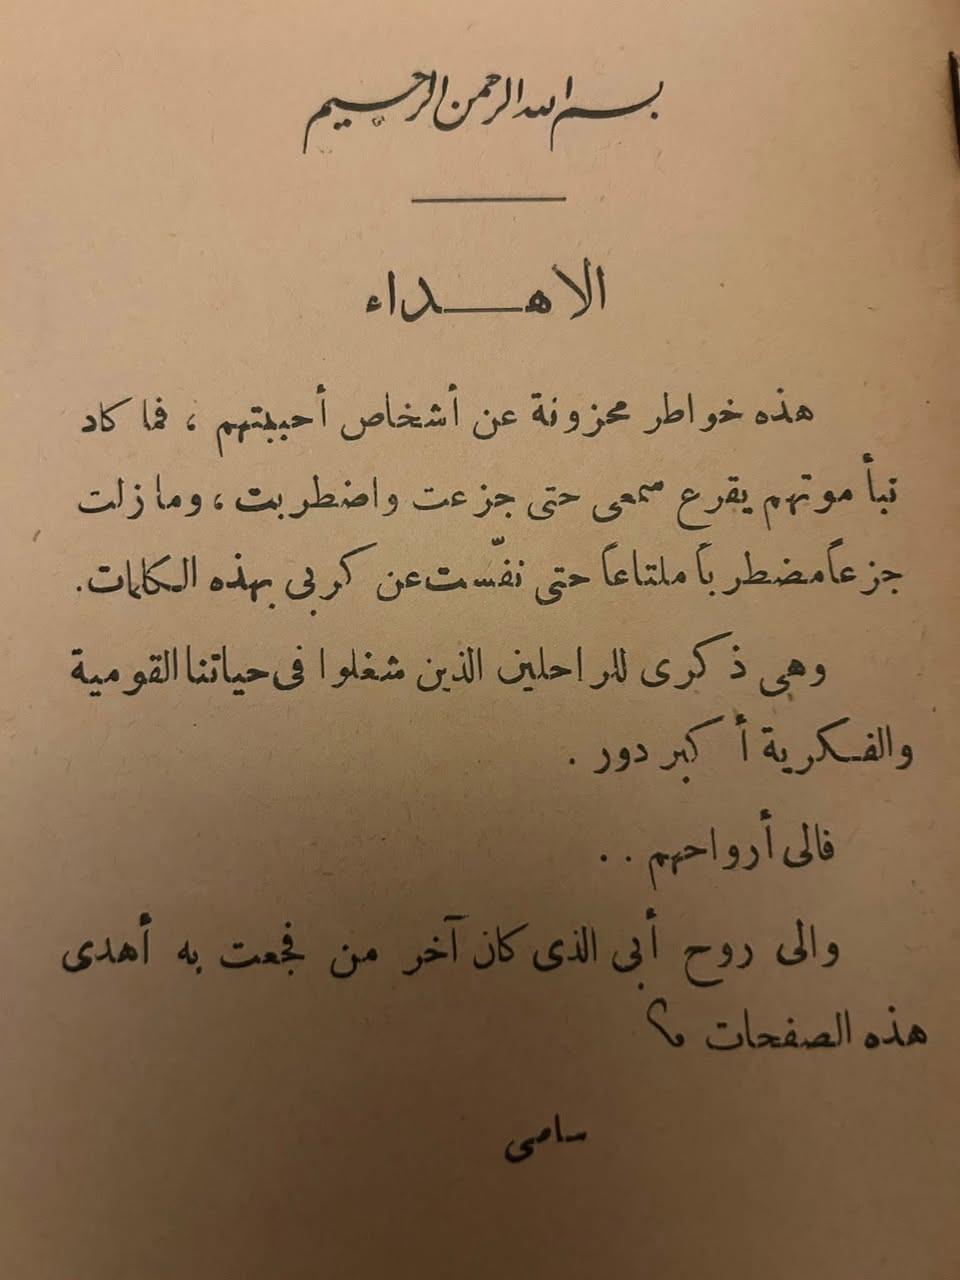 بسم الله الرحمن الرحيم
الاهــداء
هذه خواطر محزونة عن أشخاص أحببتهم ، فما كاد
نبأ موتهم يقرع سمعى حتى جزعت واضطربت ، وما زلت
جزعاً مضطرباً ملتاعاً حتى نفّست عن كربى بهذه الكلمات .
وهى ذكرى للراحلين الذين شغلوا فى حياتنا القومية
والفكرية أكبر دور .
فالى أرواحهم . .
والى روح أبى الذى كان آخر من فجعت به أهدى
هذه الصفحات
سامى